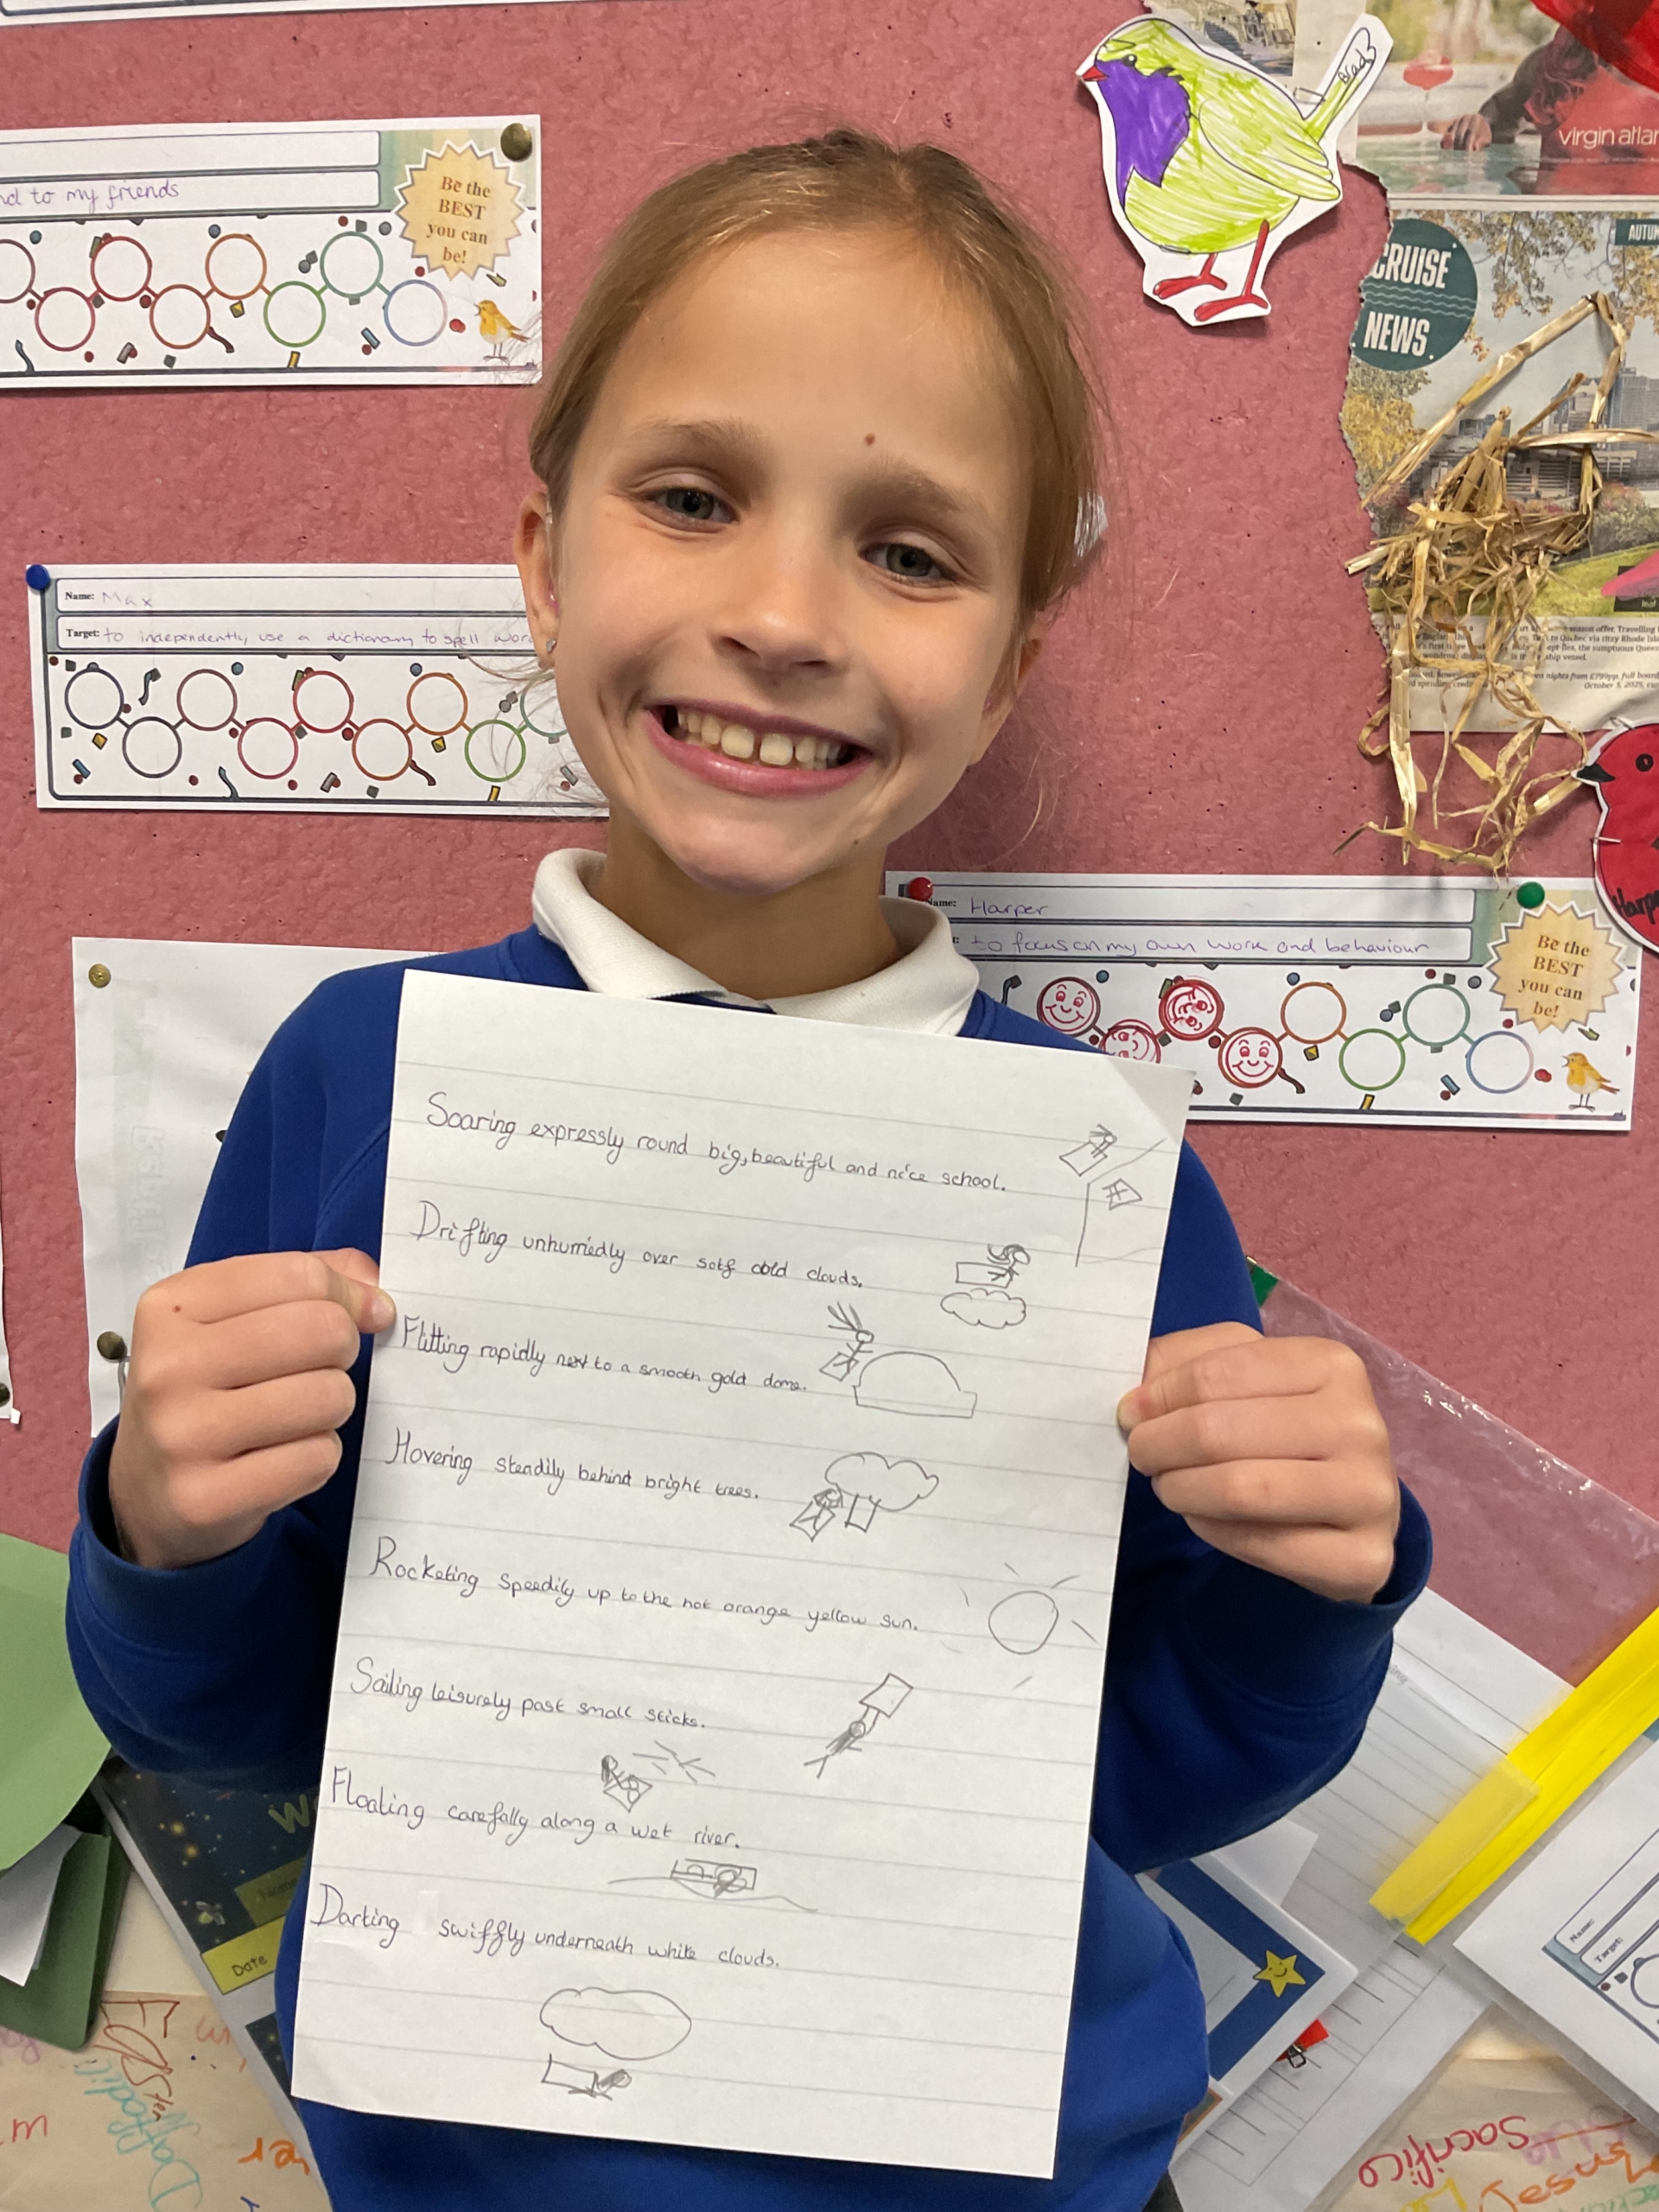 nd to my friends
Be the
BEST
you can
be!
Brad
virgin atlan
CRUISE
NEWS
AUTUM
Name: Max
Target: to independently, use a dictionary to spell wor
season offer. Travelling
October 3, 2025,
Name: Harper
to focus on my own work and behaviour
Be the
BEST
you can
be!
Harpe
Soaring expressly round big, beautiful and nice school.
Drifting unhurriedly over sotf cold clouds.
Flitting rapidly next to a smooth gold dome.
Hovering steadily behind bright trees.
Rocketing speedily up to the hot orange yellow sun.
Sailing leisurely past small sticks.
Floating carefally along a wet river.
Darting swiffly underneath white clouds.
Date
Name:
Target:
Sacrifice